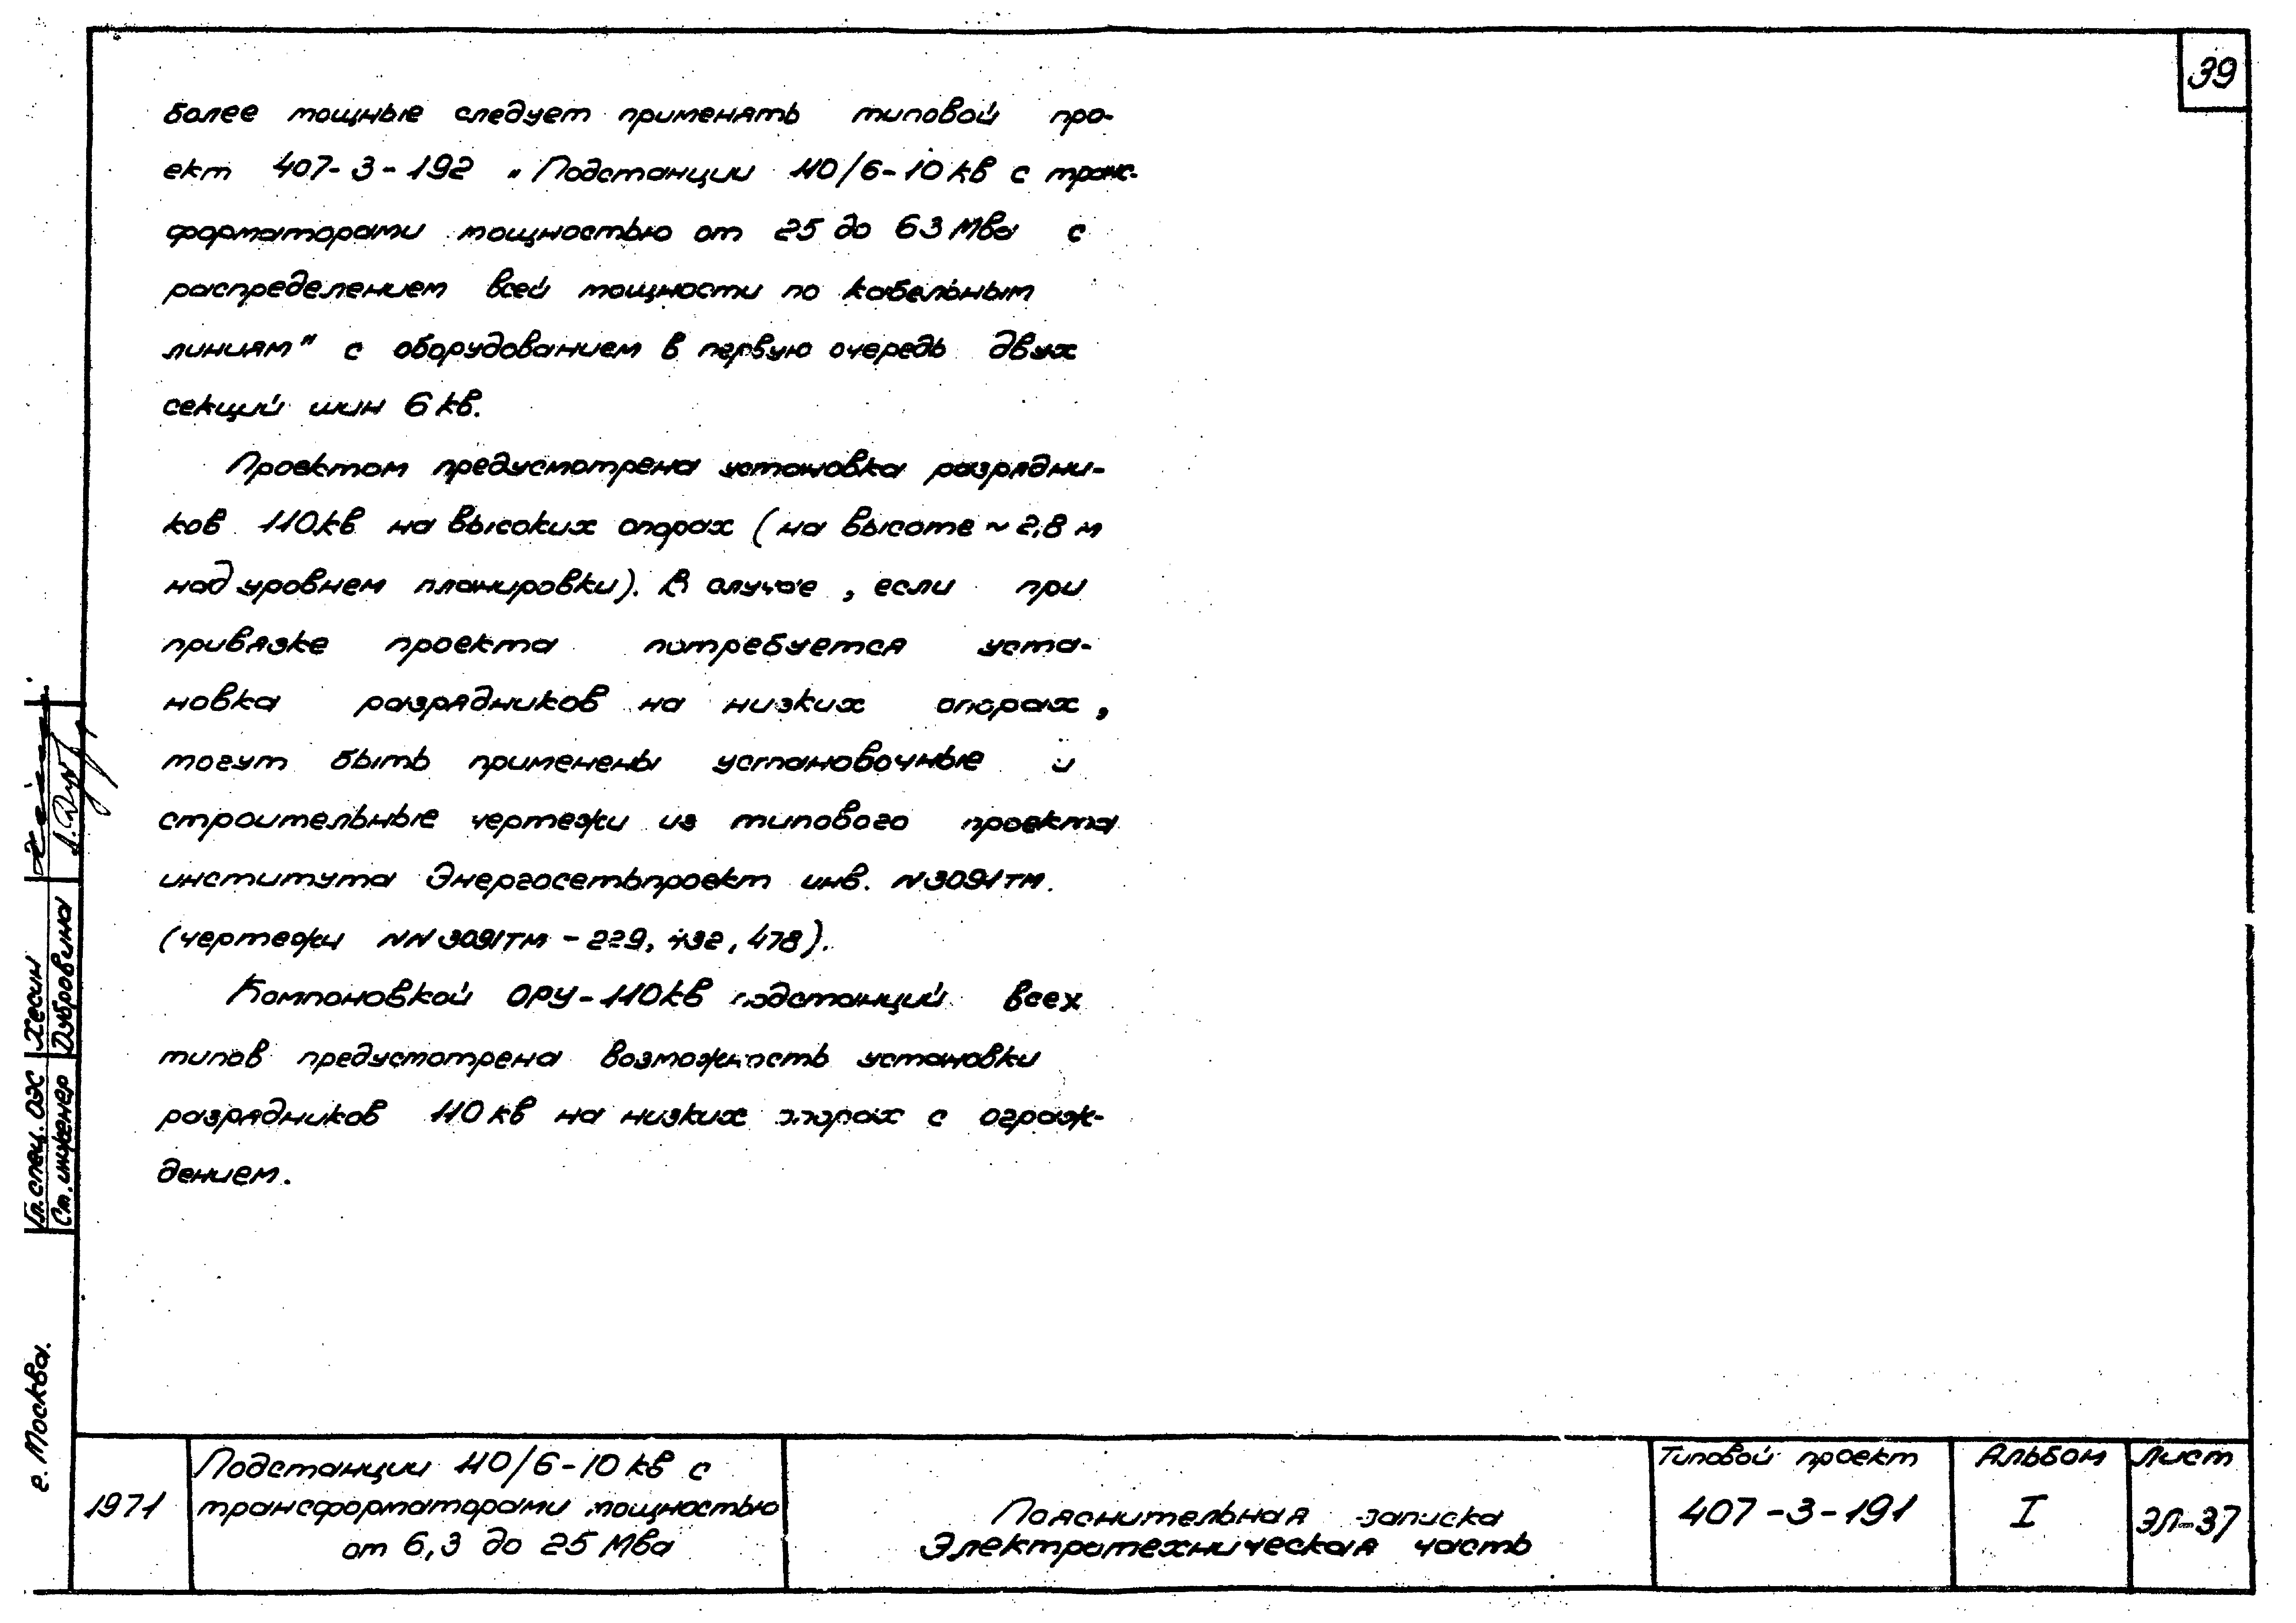 39
более мощные следует применять типовой про-
ект 407-3-192 „Подстанции 110/6-10 кв с транс-
форматорами мощностью от 25 до 63 Мва с
распределением всей мощности по кабельным
линиям" с оборудованием в первую очередь двух
секций шин 6 кв.
Проектом предусмотрена установка разрядни-
ков 110 кв на высоких опорах (на высоте ~ 2,8 м
над уровнем планировки). В случае, если при
привязке проекта потребуется уста-
новка разрядников на низких опорах,
могут быть применены установочные и
строительные чертежи из типового проекта
института Энергосетьпроект инв. N3091ТМ.
(чертежи NN 3091ТМ - 229, 432, 478).
Компоновкой ОРУ-110 кв подстанций всех
типов предусмотрена возможность установки
разрядников 110 кв на низких опорах с ограж-
дением.
Гл. спец. ОЭС Хесин
Ст. инженер Дубровина
г. Москва.
1971
Подстанции 110/6-10 кв с
трансформаторами мощностью
от 6,3 до 25 Мва
Пояснительная записка
Электротехническая часть
Типовой проект
407-3-191
Альбом
I
Лист
ЭЛ-37